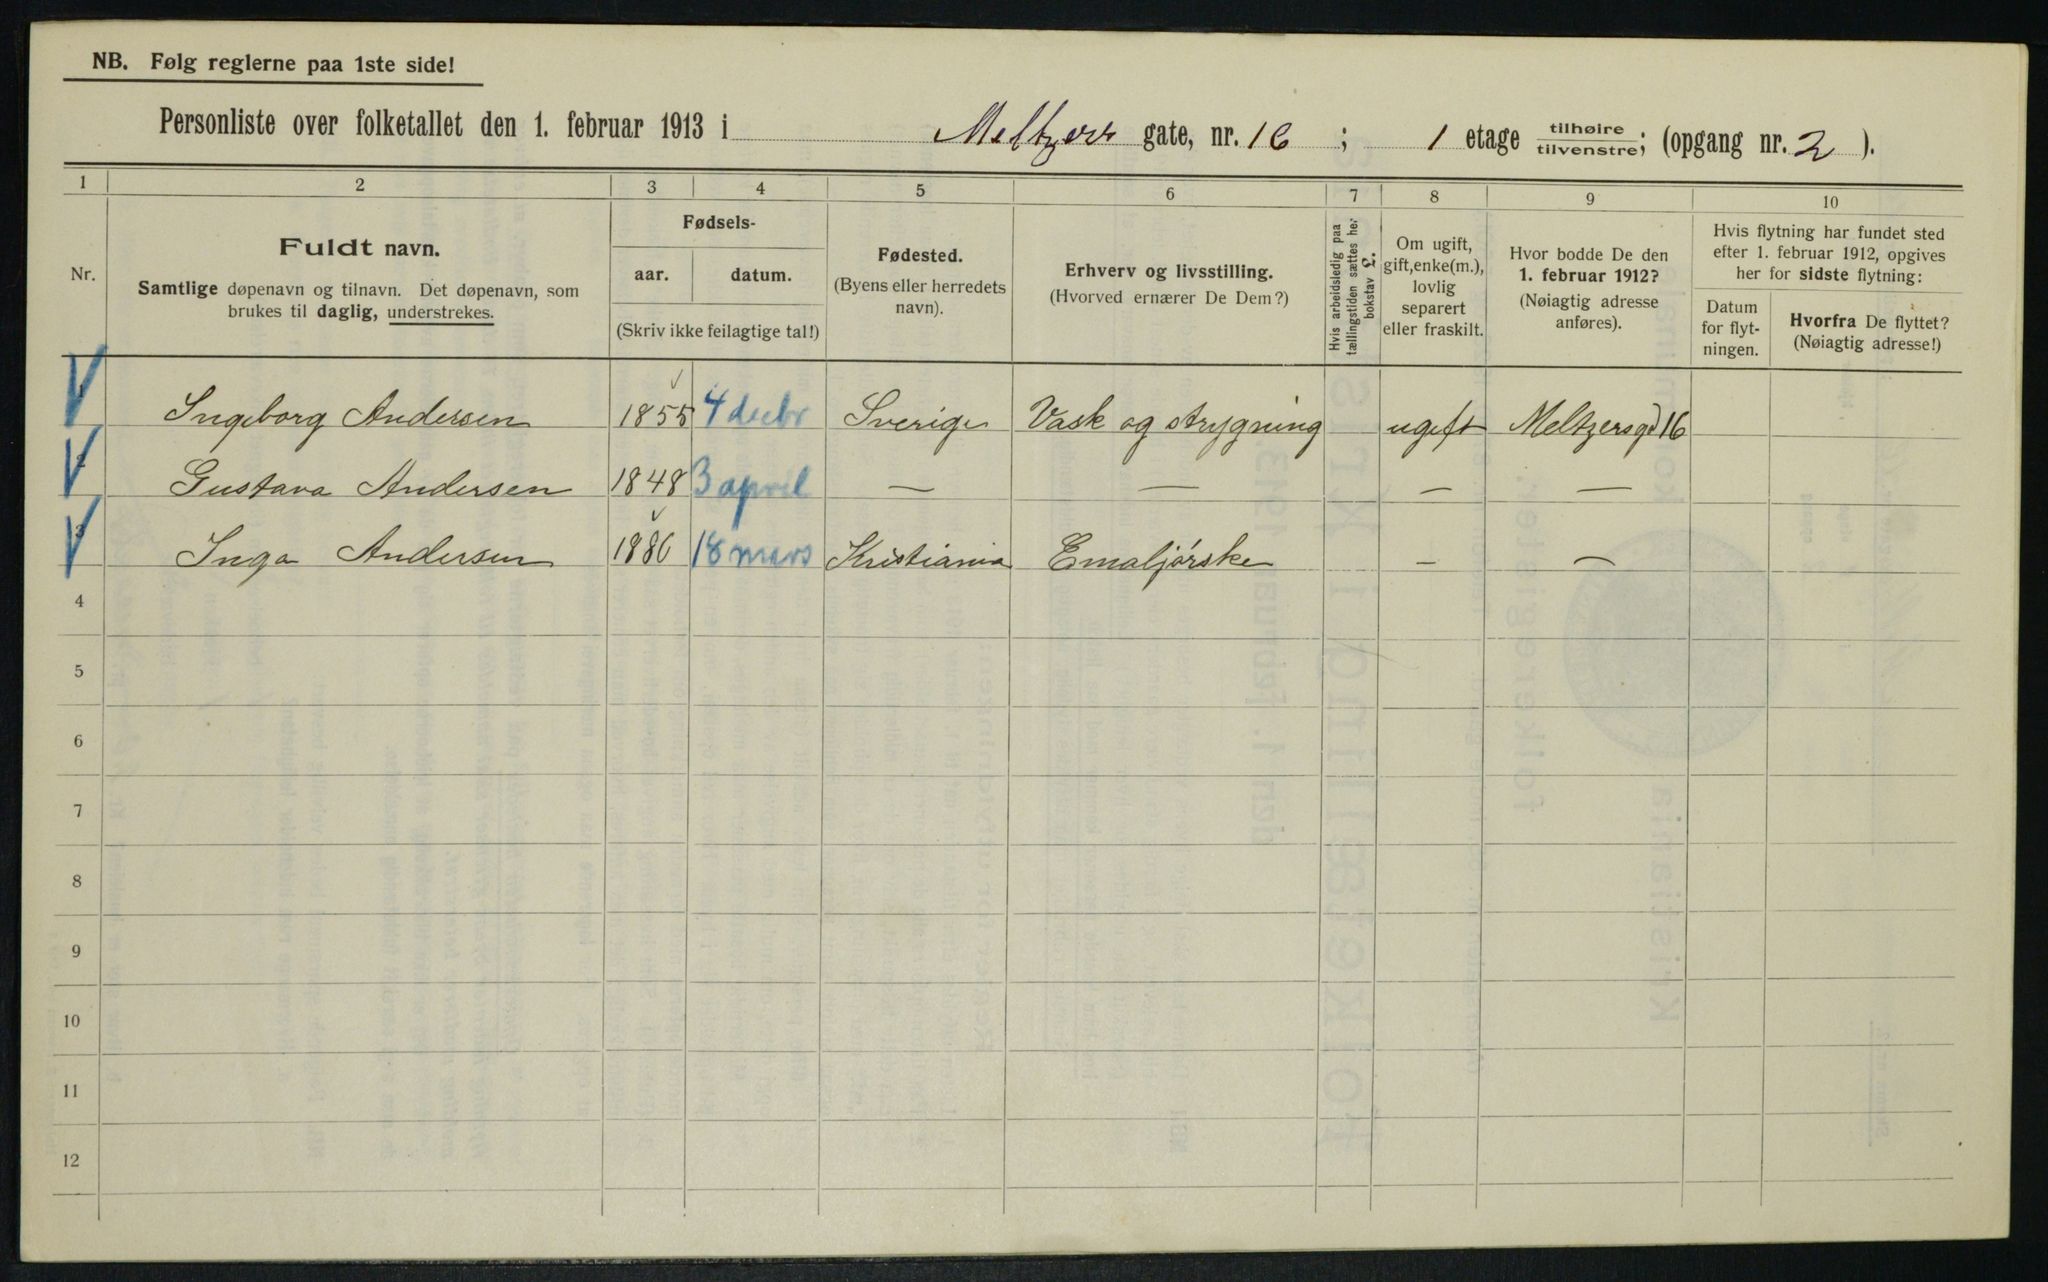 NB. Følg reglerne paa 1ste side!
Personliste over folketallet den 1. februar 1913 i Meltzers gate, nr. 16 ; 1 etage tilhøire tilvenstre; (opgang nr. 2 ).
1 2 3 4 5 6 7 8 9 10
Nr.
Fuldt navn.
Samtlige døpenavn og tilnavn. Det døpenavn, som
brukes til daglig, understrekes.
Fødsels-
aar. datum.
(Skriv ikke feilagtige tal!)
Fødested.
(Byens eller herredets
navn).
Erhverv og livsstilling.
(Hvorved ernærer De Dem?)
Hvis arbeidsledig paa
tællingstiden sættes her
bokstav L.
Om ugift,
gift, enke(m.),
lovlig
separert
eller fraskilt.
Hvor bodde De den
1. februar 1912?
(Nøiagtig adresse
anføres).
Hvis flytning har fundet sted
efter 1. februar 1912, opgives
her for sidste flytning:
Datum
for flyt-
ningen.
Hvorfra De flyttet?
(Nøiagtig adresse!)
1 Ingeborg Andersen 1855 4 decbr Sverige Vask og strygning ugift Meltzersgd 16
2 Gustava Andersen 1848 3 april — — — —
3 Inga Andersen 1886 18 mars Kristiania Emaljørske — —
4
5
6
7
8
9
10
11
12